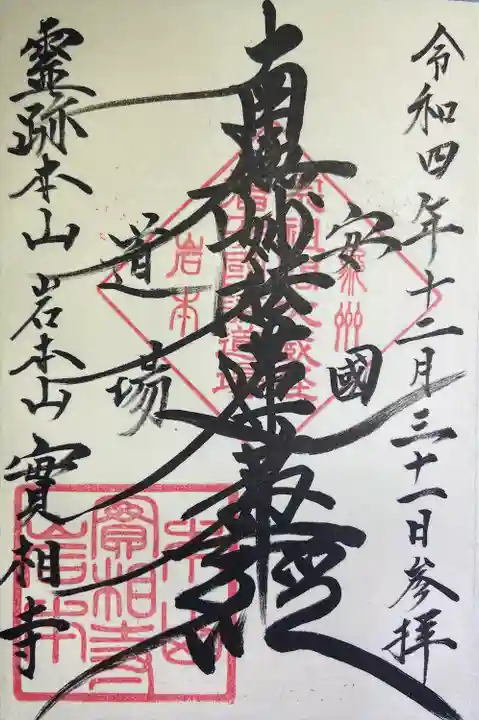 令和四年十二月三十一日参拝
安國
南無妙法蓮華経
道場
靈跡本山 岩本山 實相寺
岩本
實相寺